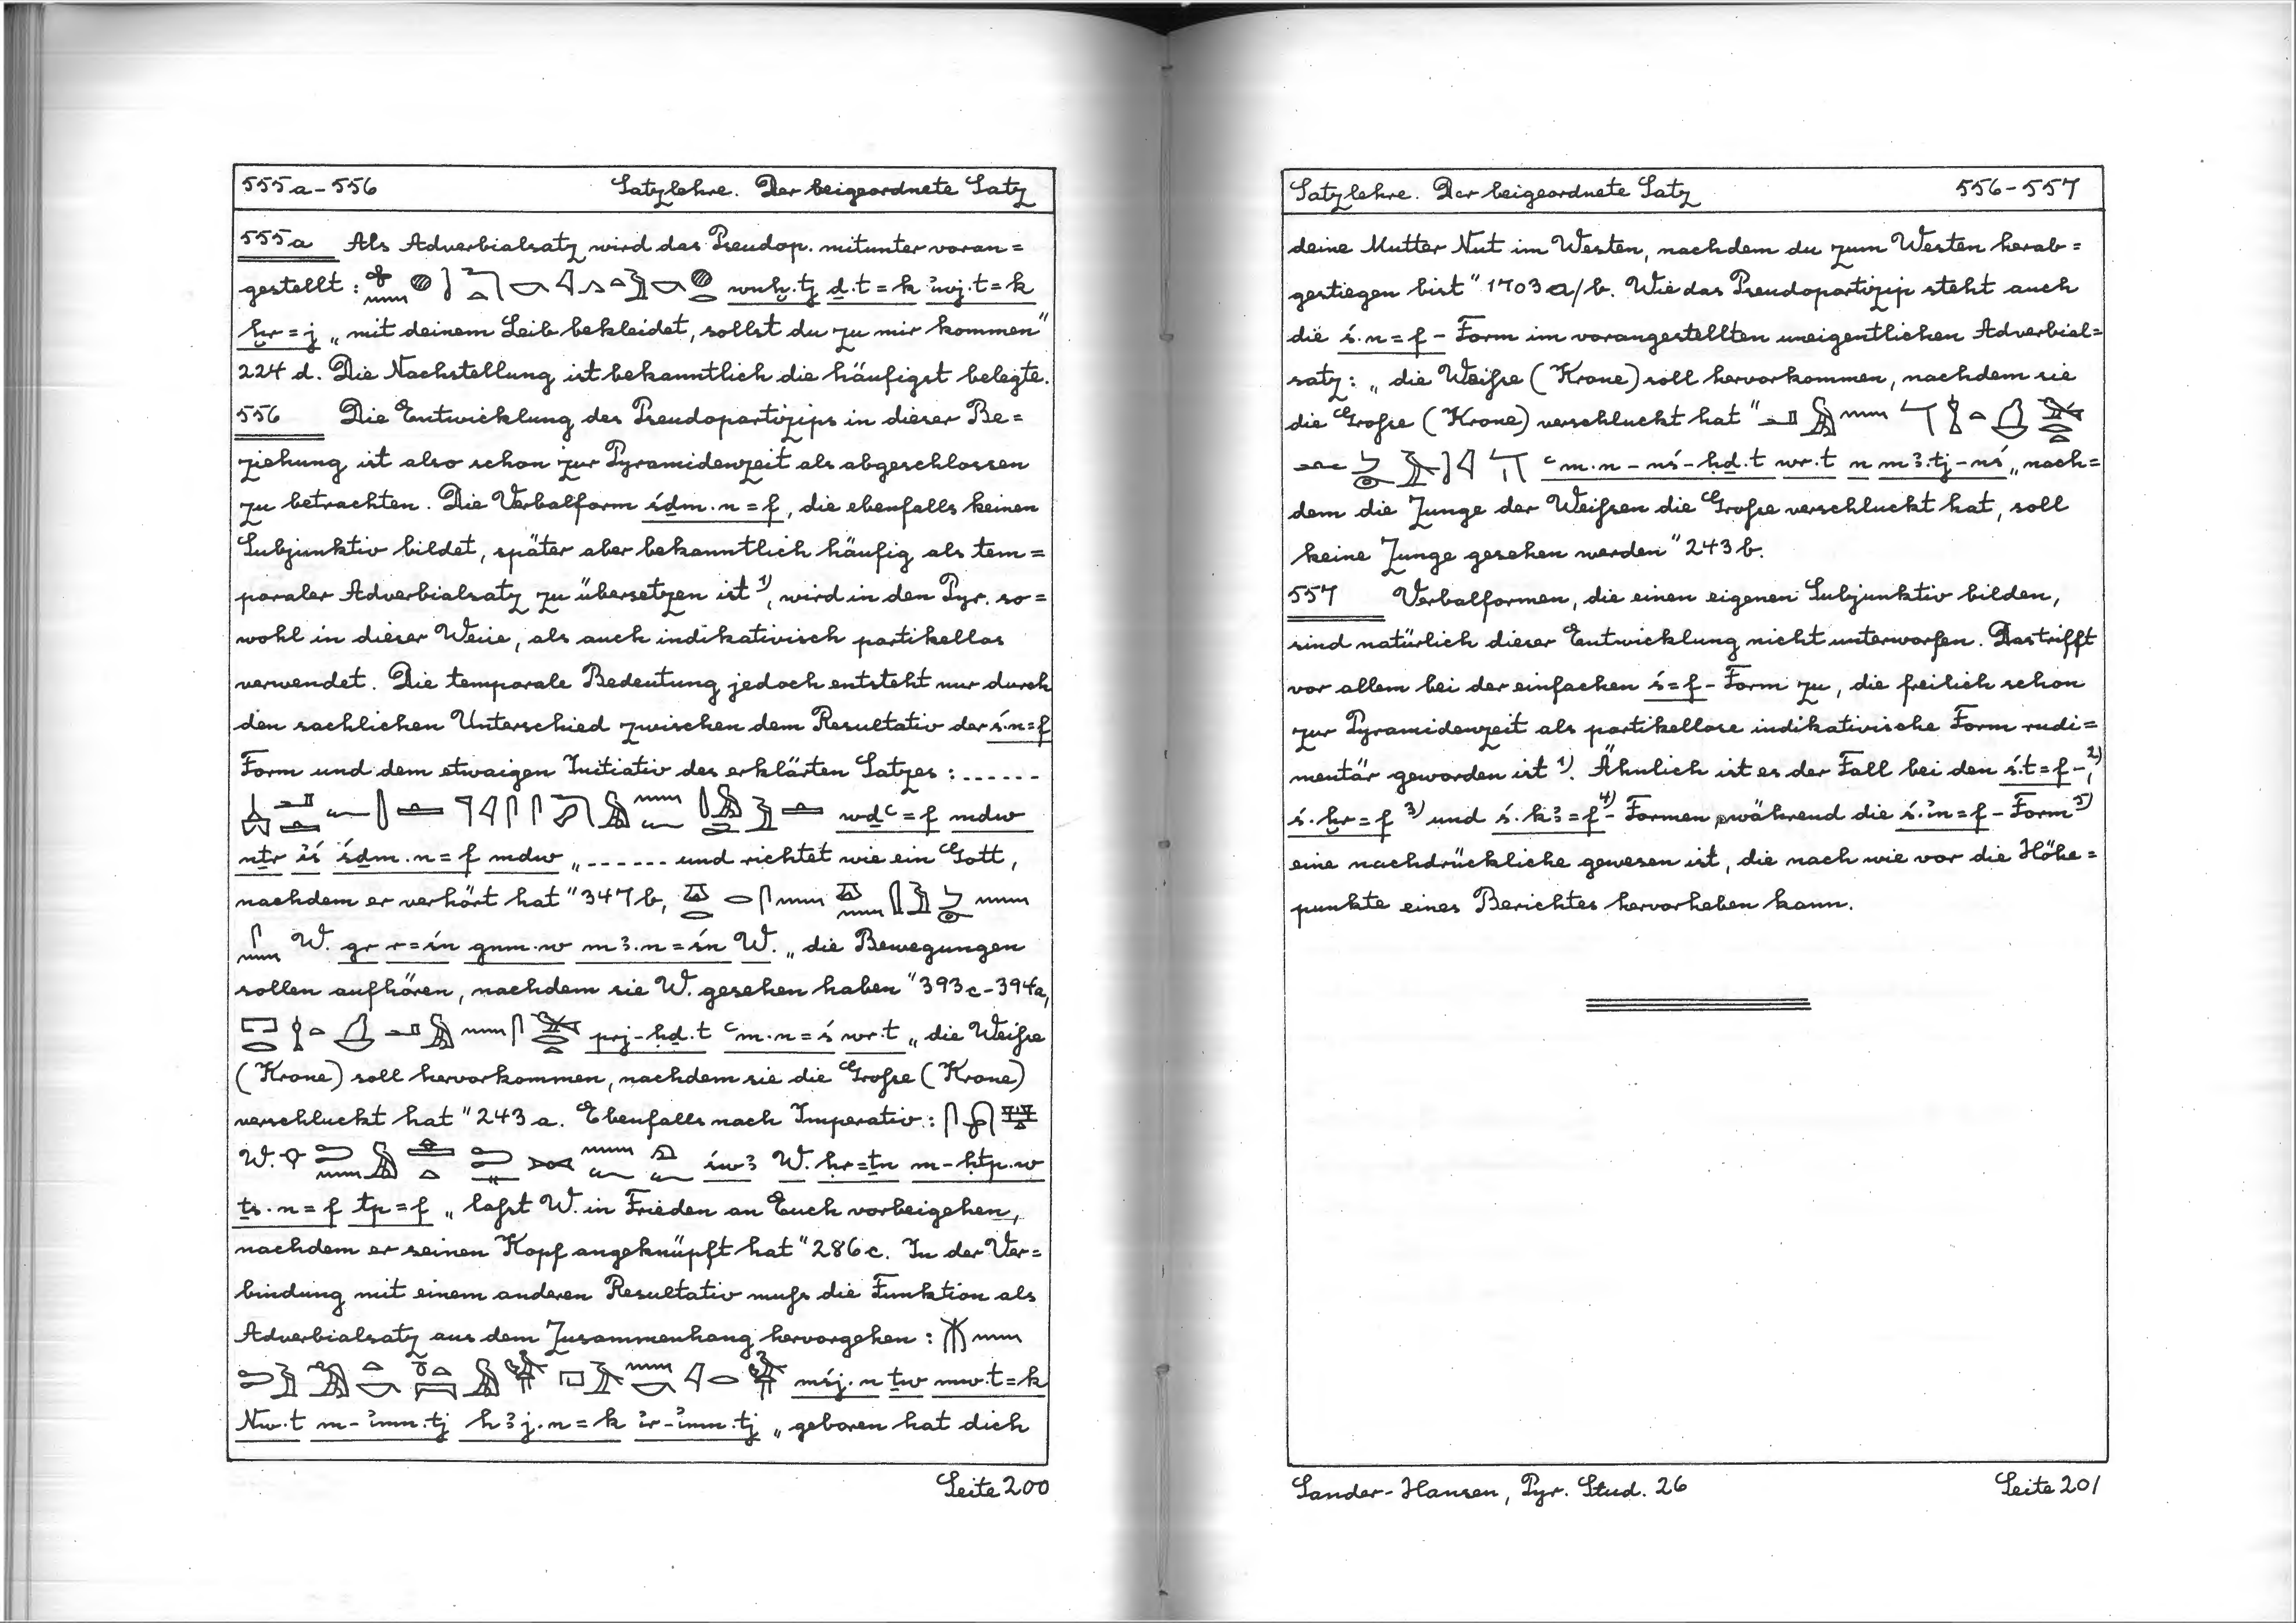 555a-556 Satzlehre. Der beigeordnete Satz
555a Als Adverbialsatz wird das Pseudop. mitunter voran=
gestellt: wnḫ.tj ḏ.t=k ꞽwj.t=k
ḫr=j „mit deinem Leib bekleidet, sollst du zu mir kommen"
224 d. Die Nachstellung ist bekanntlich die häufigst belegte.
556 Die Entwicklung des Pseudopartizips in dieser Be=
ziehung ist also schon zur Pyramidenzeit als abgeschlossen
zu betrachten. Die Verbalform śḏm.n=f, die ebenfalls keinen
Subjunktiv bildet, später aber bekanntlich häufig als tem=
poraler Adverbialsatz zu übersetzen ist 1), wird in den Pyr. so=
wohl in dieser Weise, als auch indikativisch partikellos
verwendet. Die temporale Bedeutung jedoch entsteht nur durch
den sachlichen Unterschied zwischen dem Resultativ der ś.n=f
Form und dem etwaigen Initiativ des erklärten Satzes: ------
wḏꜥ=f mdw
nṯr ꞽś śḏm.n=f mdw „------ und richtet wie ein Gott,
nachdem er verhört hat" 347 b,
W. gr r=śn gnm.w mꜣ.n=śn W. „die Bewegungen
sollen aufhören, nachdem sie W. gesehen haben" 393c-394a,
prj-ḥḏ.t ꜥm.n=ś wr.t „die Weiße
(Krone) soll hervorkommen, nachdem sie die Große (Krone)
verschluckt hat" 243 a. Ebenfalls nach Imperativ:
W. śwꜣ W. ḥr=ṯn m-ḥtp.w
ṯs.n=f tp=f „laßt W. in Frieden an Euch vorbeigehen,
nachdem er seinen Kopf angeknüpft hat" 286 c. In der Ver=
bindung mit einem anderen Resultativ muß die Funktion als
Adverbialsatz aus dem Zusammenhang hervorgehen:
mśj.n ṯw mw.t=k
Nw.t m-ꞽmn.tj hꜣj.n=k ꞽr-ꞽmn.tj „geboren hat dich
Seite 200
Satzlehre. Der beigeordnete Satz 556-557
deine Mutter Nut im Westen, nachdem du zum Westen herab=
gestiegen bist" 1703 a/b. Wie das Pseudopartizip steht auch
die ś.n=f-Form im vorangestellten uneigentlichen Adverbial=
satz: „die Weiße (Krone) soll hervorkommen, nachdem sie
die Große (Krone) verschluckt hat"
ꜥm.n-nś-ḥḏ.t wr.t n mꜣ.tj-nś „nach=
dem die Zunge der Weißen die Große verschluckt hat, soll
keine Zunge gesehen werden" 243 b.
557 Verbalformen, die einen eigenen Subjunktiv bilden,
sind natürlich dieser Entwicklung nicht unterworfen. Das trifft
vor allem bei der einfachen ś=f-Form zu, die freilich schon
zur Pyramidenzeit als partikellose indikativische Form rudi=
mentär geworden ist 1). Ähnlich ist es der Fall bei den ś.t=f-, 2)
ś.ḫr=f 3) und ś.kꜣ=f 4)-Formen, während die ś.ꞽn=f-Form 5)
eine nachdrückliche gewesen ist, die nach wie vor die Höhe=
punkte eines Berichtes hervorheben kann.
Sander-Hansen, Pyr. Stud. 26 Seite 201